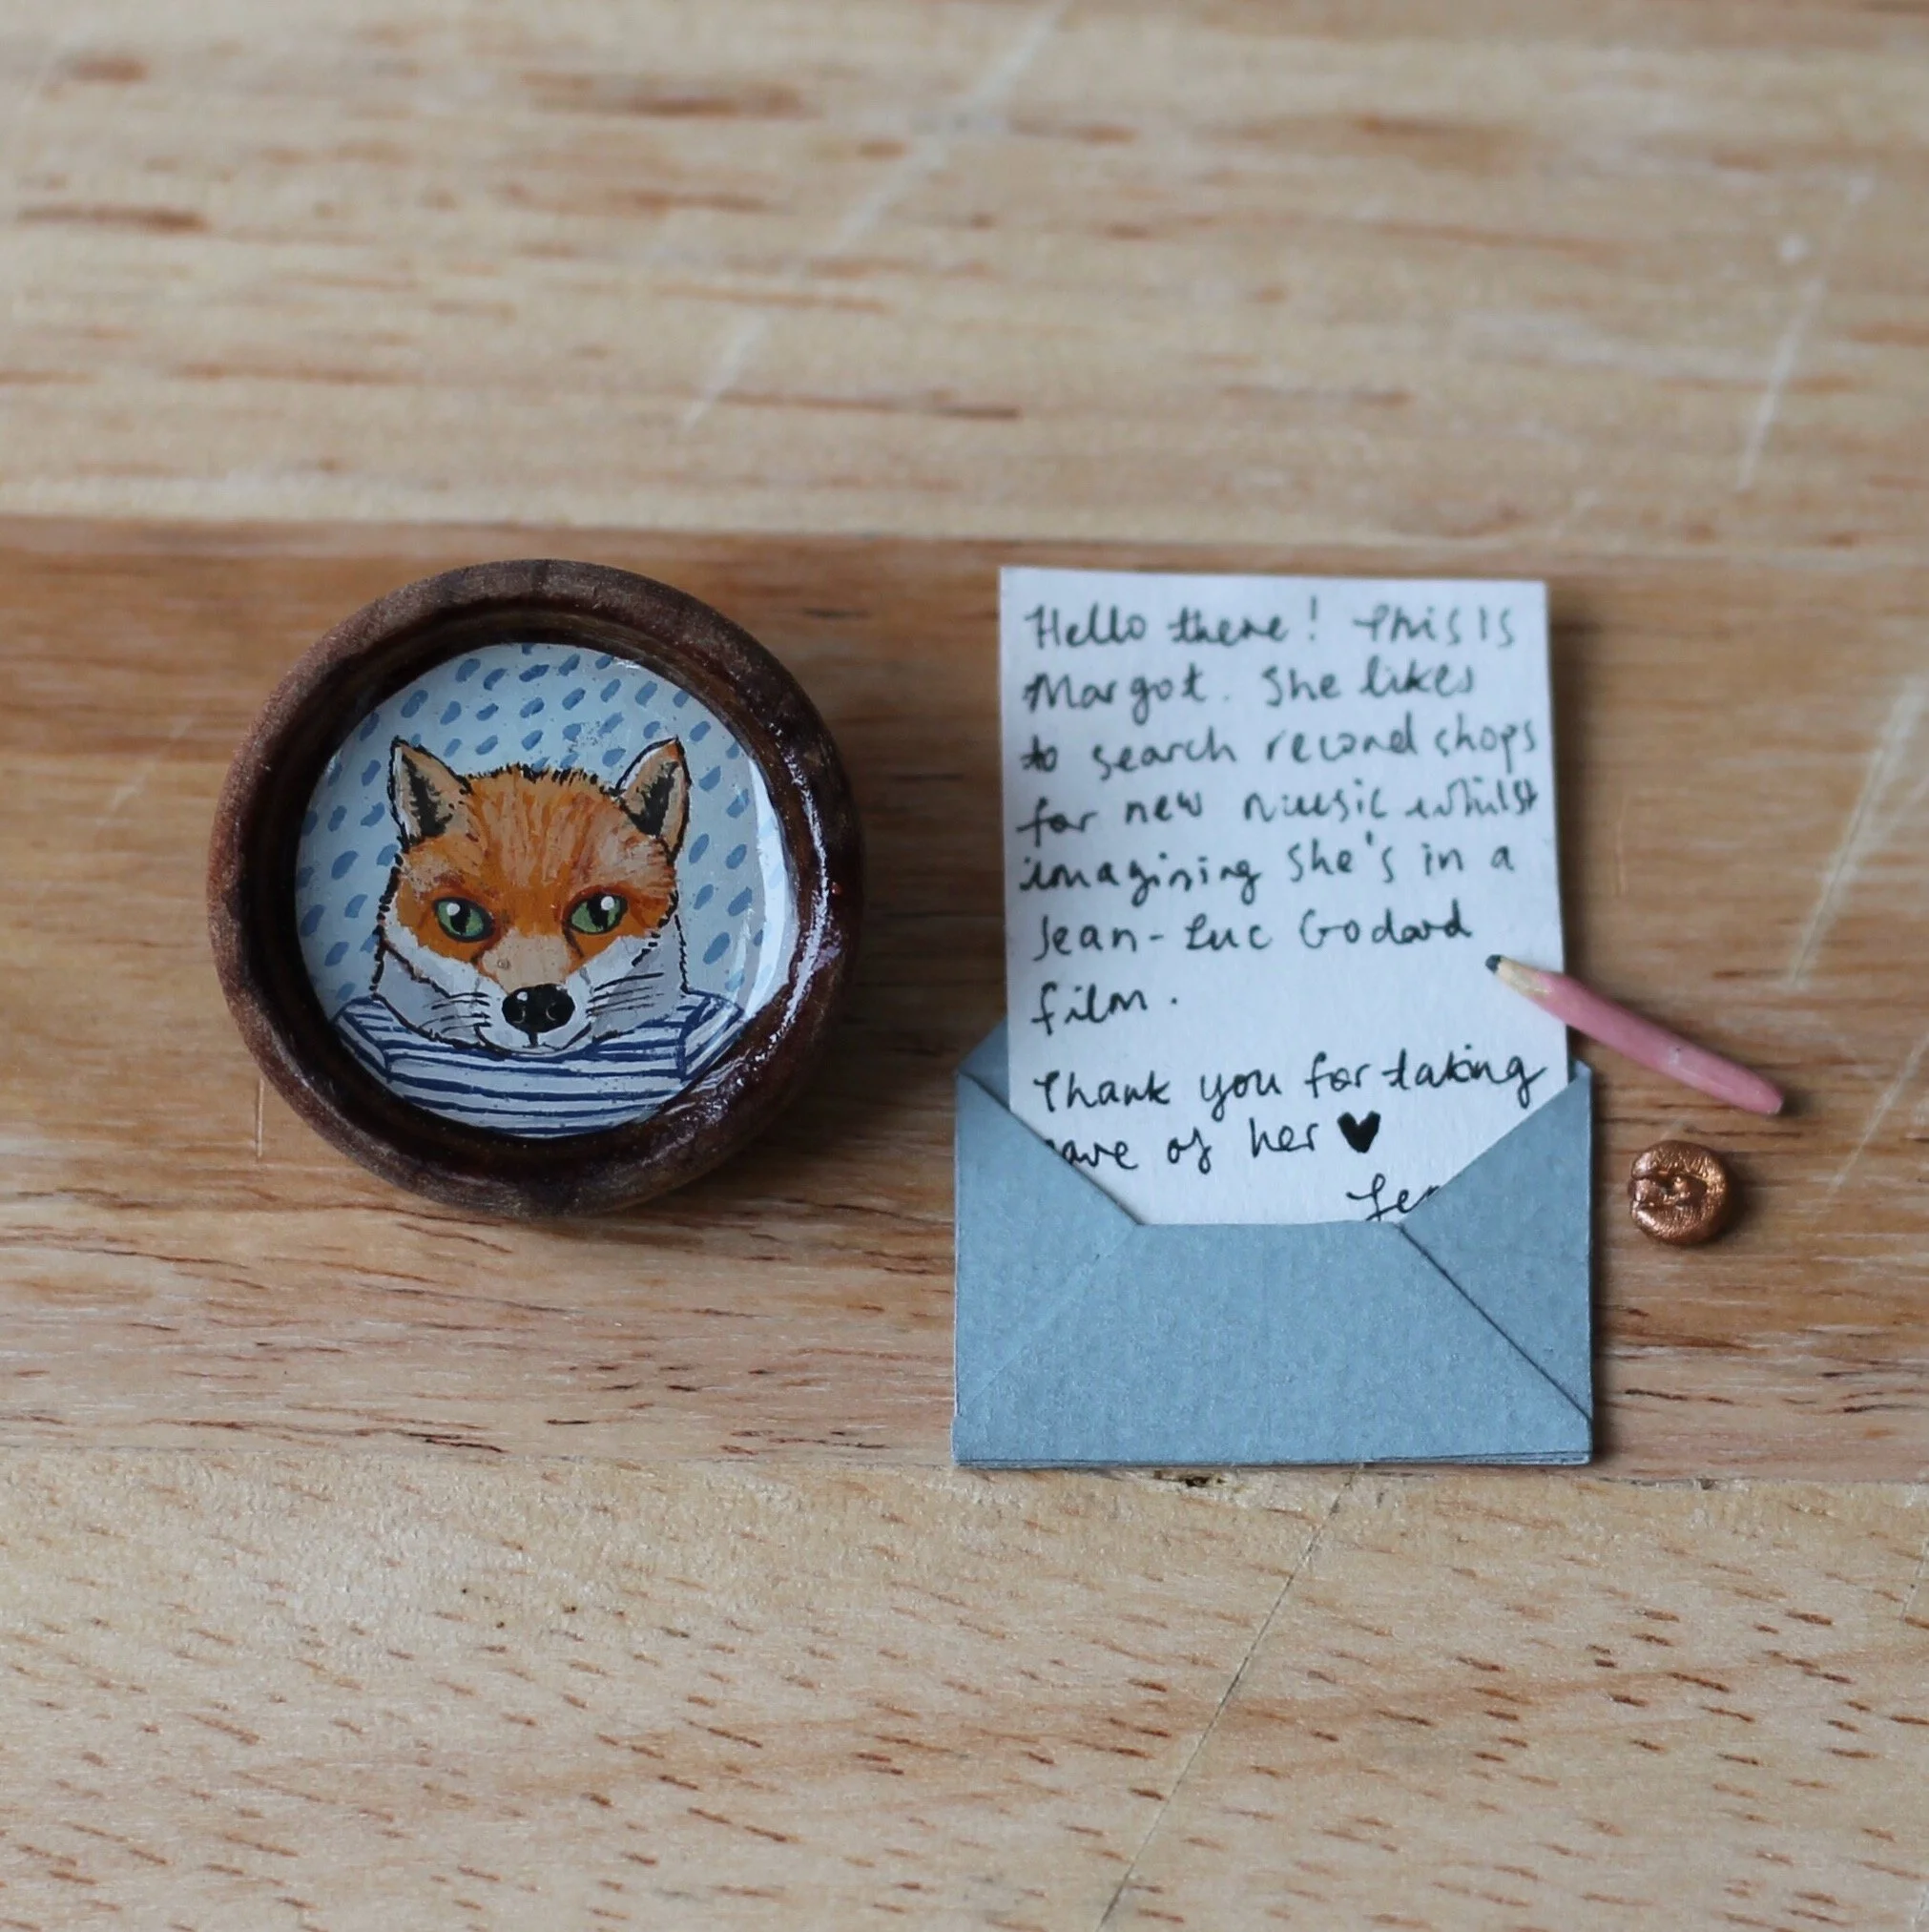 Hello there! This is
Margot. She likes
to search record shops
for new music whilst
imagining she's in a
Jean-Luc Godard
film.
Thank you for taking
care of her ♥